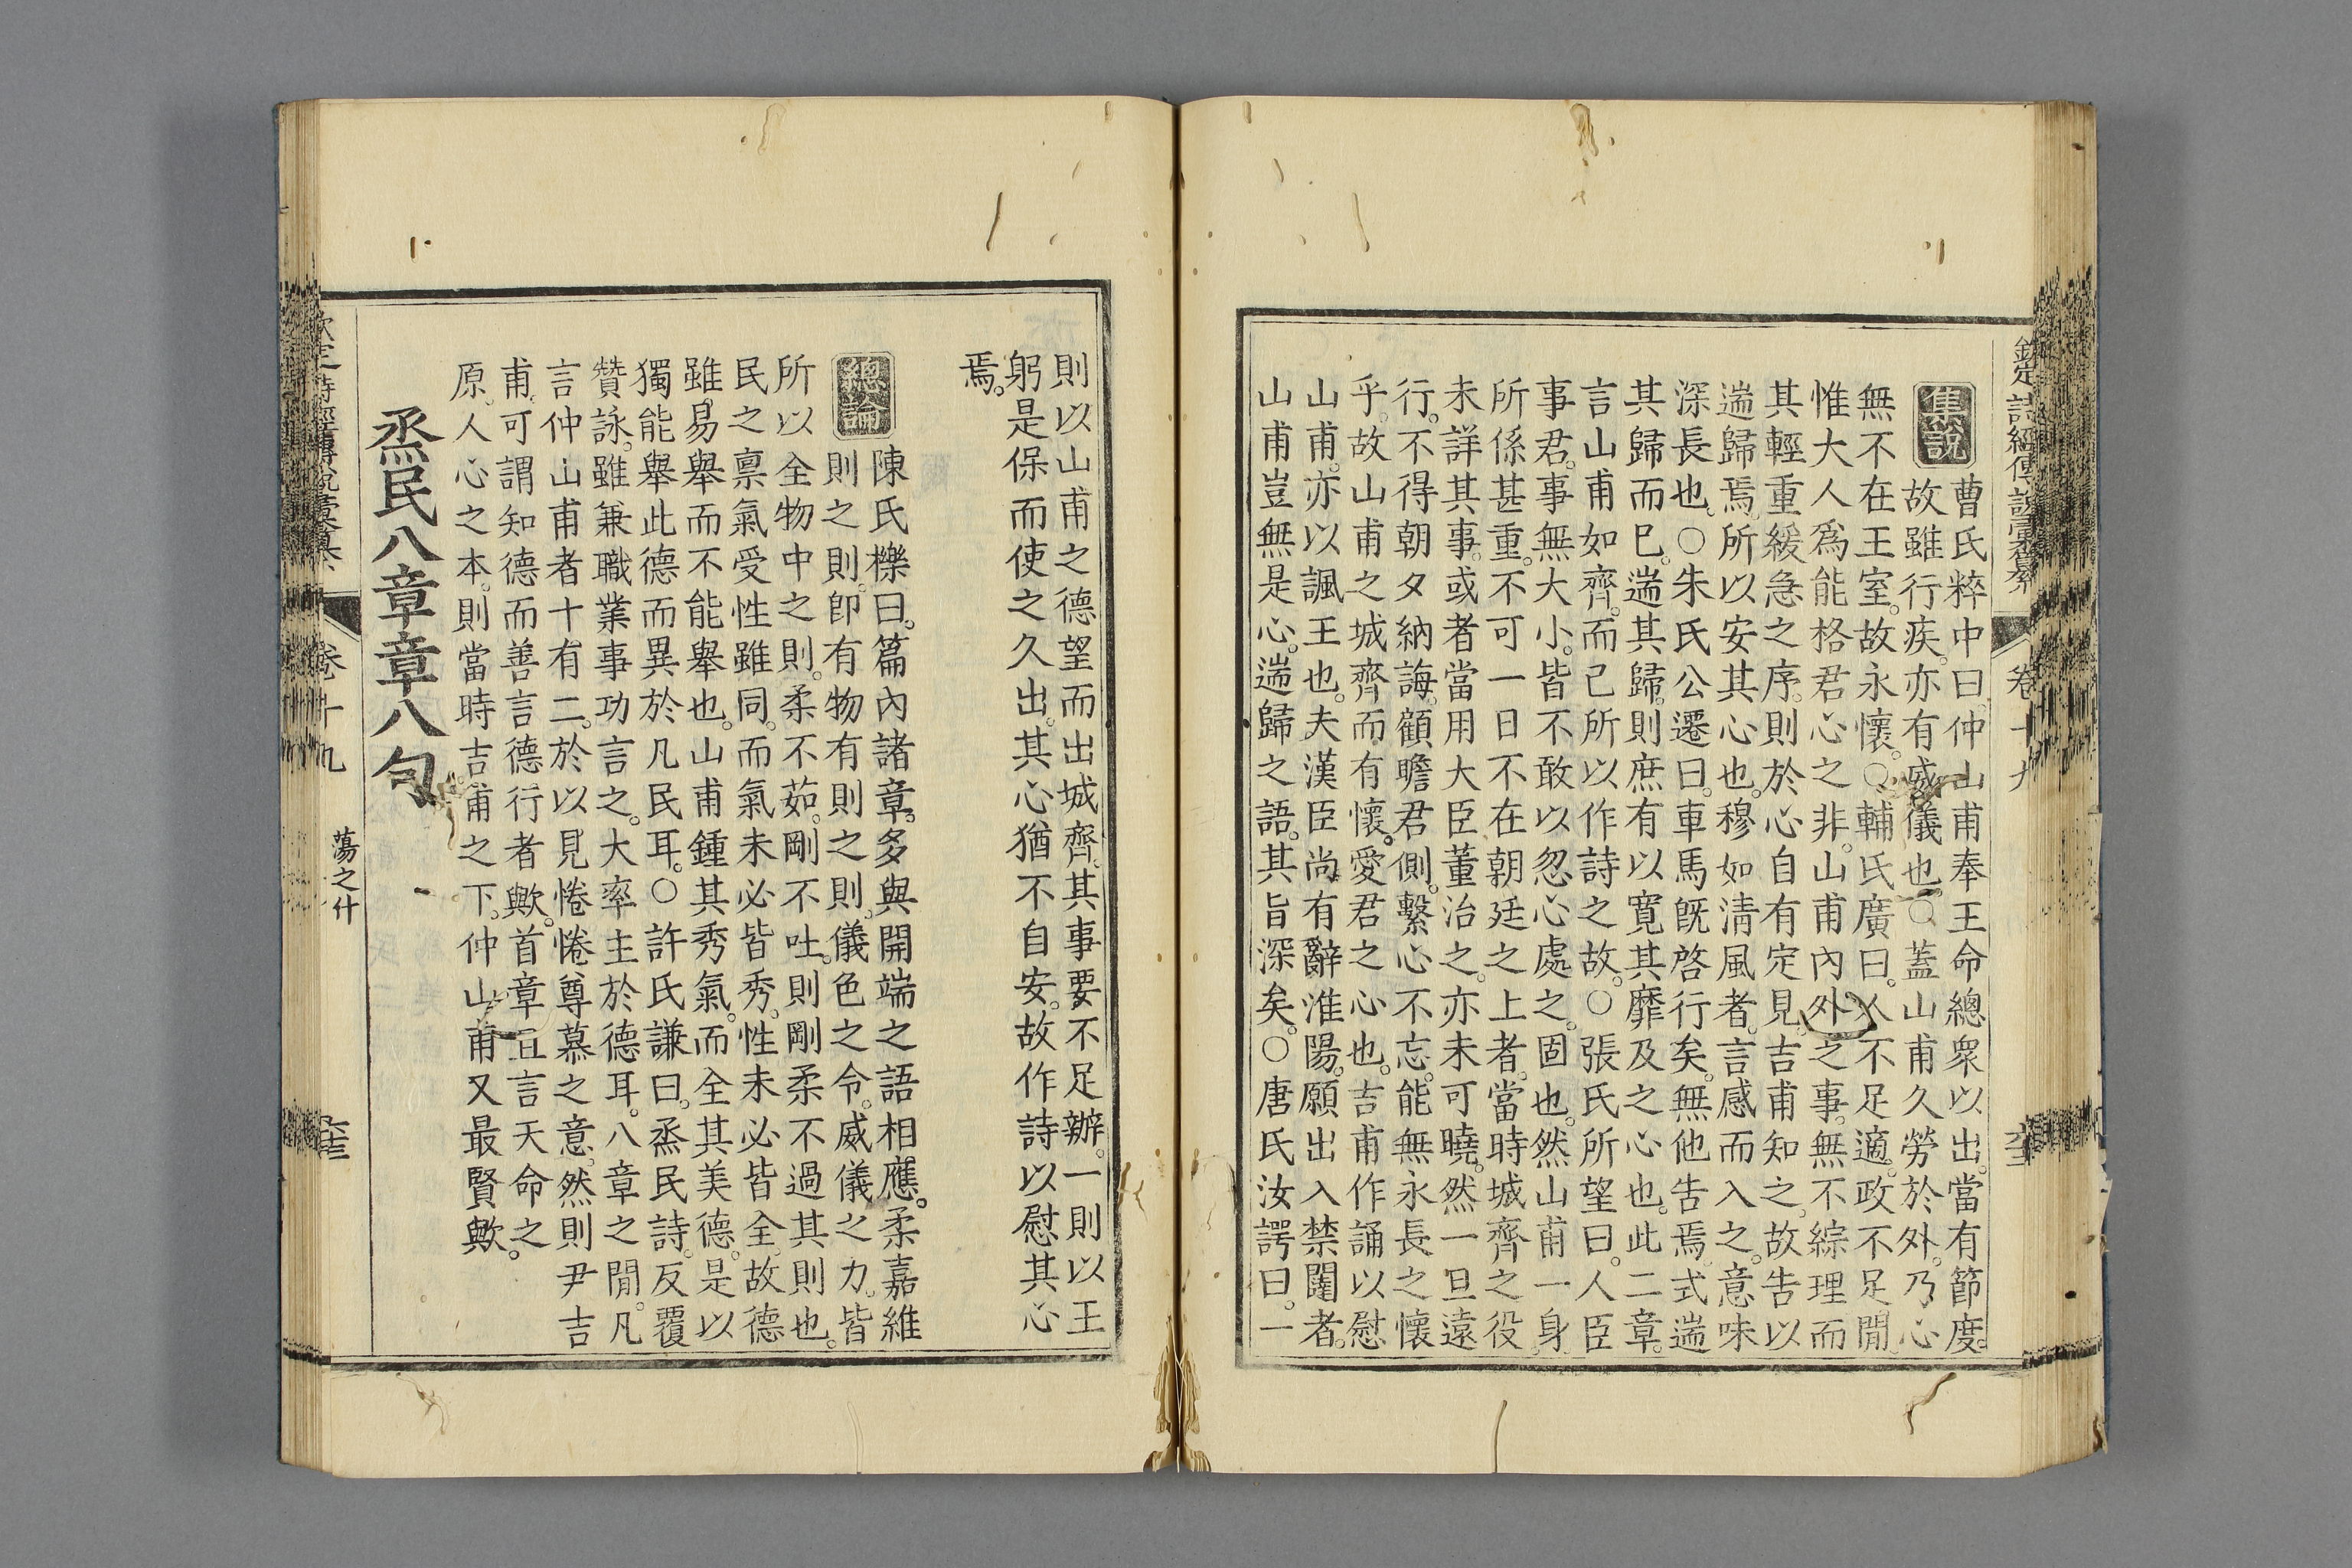 欽定詩經傳說彙纂
卷十九
集說
曹氏粹中曰仲山甫奉王命總衆以出當有節度
故雖行疾亦有威儀也○蓋山甫久勞於外乃心
無不在王室故永懷○輔氏廣曰人不足適政不足閒
惟大人爲能格君心之非山甫內外之事無不綜理而
其輕重緩急之序則於心自有定見吉甫知之故告以
遄歸焉所以安其心也穆如清風者言感而入之意味
深長也○朱氏公遷曰車馬旣啓行矣無他告焉式遄
其歸而已遄其歸則庶有以寬其靡及之心也此二章
言山甫如齊而己所以作詩之故○張氏所望曰人臣
事君事無大小皆不敢以忽心處之固也然山甫一身
所係甚重不可一日不在朝廷之上者當時城齊之役
未詳其事或者當用大臣董治之亦未可曉然一旦遠
行不得朝夕納誨顧瞻君側繫心不忘能無永長之懷
乎故山甫之城齊而有懷愛君之心也吉甫作誦以慰
山甫亦以諷王也夫漢臣尚有辭淮陽願出入禁闥者
山甫豈無是心遄歸之語其旨深矣○唐氏汝諤曰一
則以山甫之德望而出城齊其事要不足辦一則以王
躬是保而使之久出其心猶不自安故作詩以慰其心
焉
總論
陳氏櫟曰篇內諸章多與開端之語相應柔嘉維
則之則卽有物有則之則儀色之令威儀之力皆
所以全物中之則柔不茹剛不吐則剛柔不過其則也
民之禀氣受性雖同而氣未必皆秀性未必皆全故德
雖易舉而不能舉也山甫鍾其秀氣而全其美德是以
獨能舉此德而異於凡民耳○許氏謙曰烝民詩反覆
贊詠雖兼職業事功言之大率主於德耳八章之閒凡
言仲山甫者十有二於以見惓惓尊慕之意然則尹吉
甫可謂知德而善言德行者歟首章亘言天命之
原人心之本則當時吉甫之下仲山甫又最賢歟
烝民八章章八句
卷十九
蕩之什